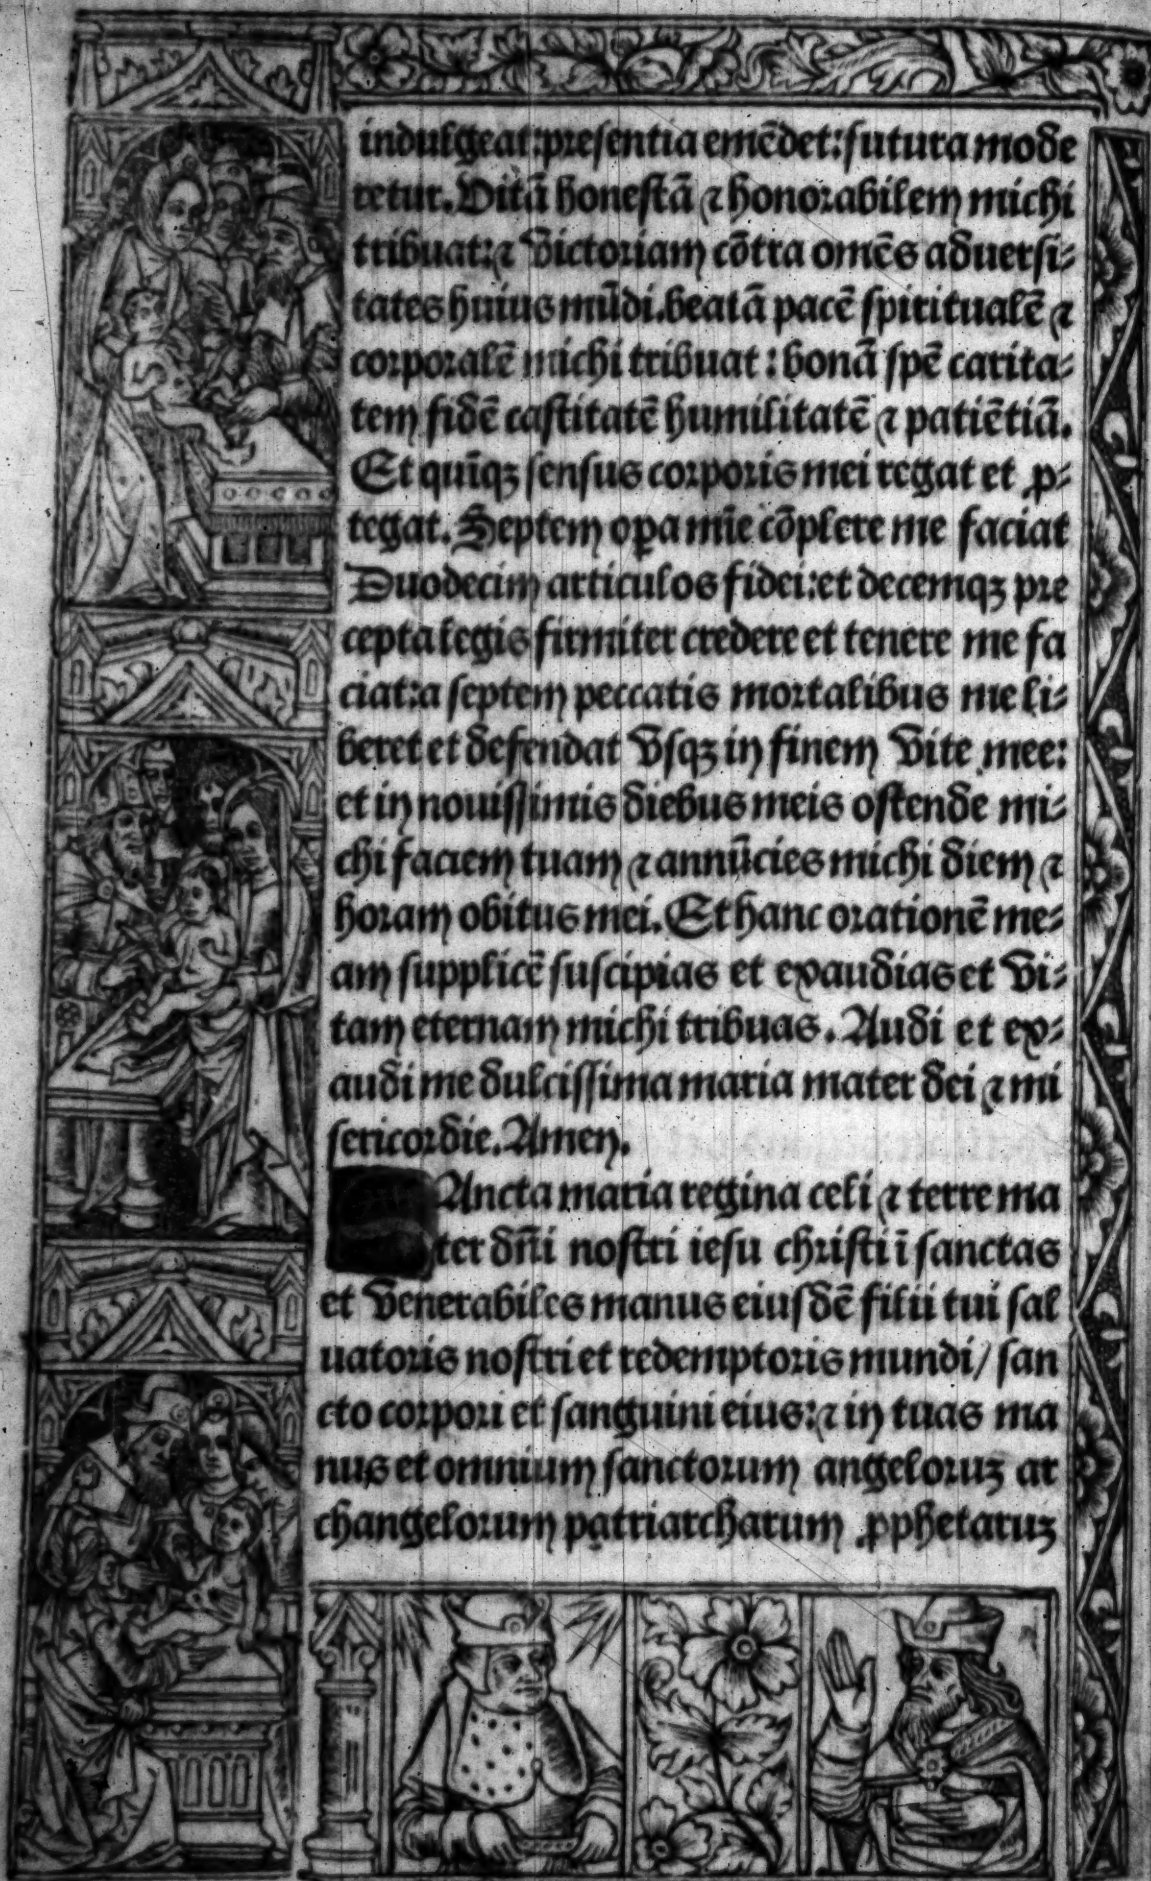 indulgeat:presentia emēdet:futura mode
retur. Vitā honestā ⁊ honorabilem michi
tribuat:⁊ victoriam cōtra omēs aduersi⸗
tates huius mūdi.beatā pacē spiritualē ⁊
corporalē michi tribuat: bonā spē carita⸗
tem fidē castitatē humilitatē ⁊ patiētiā.
Et quīqꝫ sensus corporis mei regat et ꝓ⸗
tegat. Septem oꝑa mīe cōplere me faciat
Duodecim articulos fidei:et decemqꝫ pre
cepta legis firmiter credere et tenere me fa
ciat:a septem peccatis mortalibus me li⸗
beret et defendat vsqꝫ in finem vite mee:
et in nouissimis diebus meis ostende mi⸗
chi faciem tuam ⁊ annūcies michi diem ⁊
horam obitus mei. Et hanc orationē me⸗
am supplicē suscipias et exaudias et vi⸗
tam eternam michi tribuas. Audi et ex⸗
audi me dulcissima maria mater dei ⁊ mi
sericordie. Amen.
Ancta maria regina celi ⁊ terre ma
ter dn̄i nostri iesu christi ī sanctas
et venerabiles manus eiusdē filii tui sal
uatoris nostri et redemptoris mundi/ san
cto corpori et sanguini eius:⁊ in tuas ma
nus et omnium sanctorum angeloruꝫ ar
changelorum patriarcharum ꝓphetaruꝫ